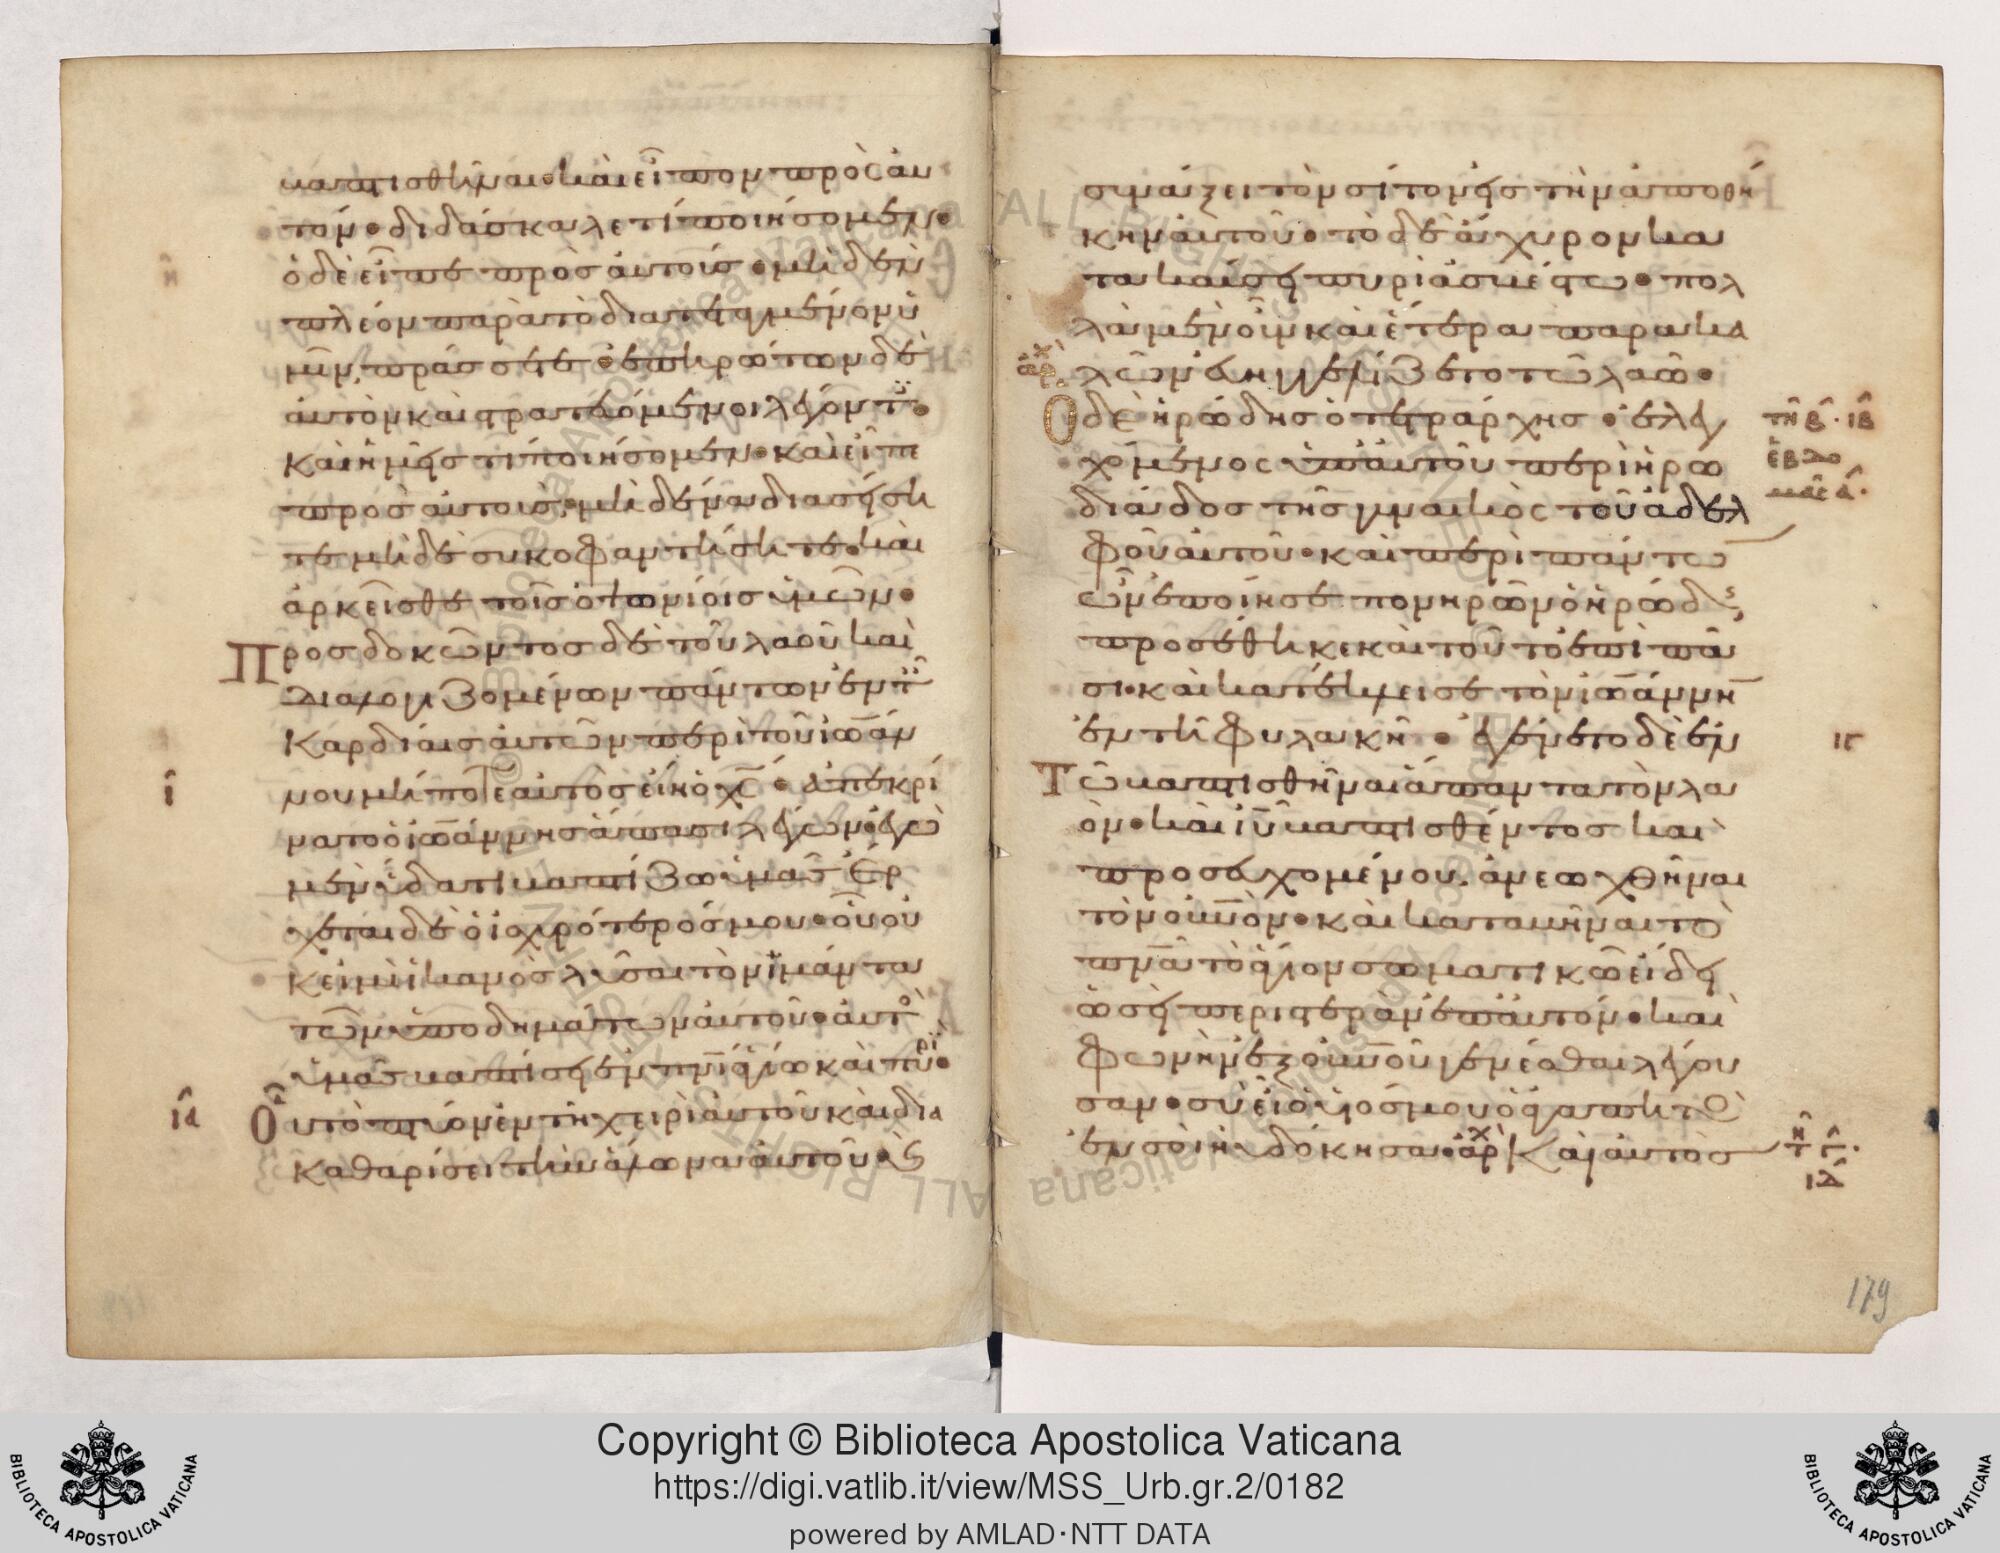 βαπτισθῆναι· καὶ εἶπον πρὸς αὐ
τόν· διδάσκαλε τί ποιήσομεν·
ὁ δὲ εἶπε πρὸς αὐτούς· μηδὲν
πλέον παρὰ τὸ διατεταγμένον ὑ
μῖν, πράσσετε· ἐπηρώτων δὲ
αὐτὸν καὶ στρατευόμενοι λέγοντ·
καὶ ἡμεῖς τί ποιήσομεν· καὶ εἶπε
πρὸς αὐτούς, μηδένα διασείση
τε μηδὲ συκοφαντήσητε· καὶ
ἀρκεῖσθε τοῖς ὀψωνίοις ὑμῶν·
Προσδοκῶντος δὲ τοῦ λαοῦ καὶ
διαλογιζομένων πάντων ἐν τ
καρδίαις αὐτῶν περὶ τοῦ ἰωάν
ῑ
νου μήποτε αὐτὸς εἴη ὁ χς· ἀπεκρί
νατο ὁ ἰωάννης ἅπασι λέγων· ἐγὼ
μὲν ὕδατι βαπτίζω ὑμᾶς ἔρ
χεται δὲ ὁ ἰσχυρότερός μου· οὗ οὐ
κ εἰμὶ ἱκανὸς λῦσαι τὸν ἱμάντα
τῶν ὑποδημάτων αὐτοῦ· αὐτο
ὑμᾶς βαπτίσει ἐν πνι ἁγίω καὶ πυρί·
ιᾱ
Οὗ τὸ πτύον ἐν τῆ χειρὶ αὐτοῦ καὶ δια
καθαρίσει τὴν ἅλωνα αὐτοῦ· καὶ
συνάξει τὸν σίτον εἰς τὴν ἀποθή
κην αὐτοῦ· τὸ δὲ ἄχυρον κα
τακαύσει πυρὶ ἀσβέστω· πολ
λὰ μὲν οὖν καὶ ἕτερα παρακα
ἀρχ
λῶν εὐηγγελίζετο τῶ λαῶ·
Ὁ δὲ ἡρώδης ὁ τετράρχης· ἐλεγ
τῆ β. ιβ
χόμενος ὑπ' αὐτοῦ περὶ ἡρω
ἑβδο
διάδος τῆς γυναικὸς τοῦ ἀδελ
μάδ α.
φοῦ αὐτοῦ· καὶ περὶ πάντω
ὧν ἐποίησε πονηρῶν ὁ ἡρώδς
προσέθηκε καὶ τοῦτο ἐπὶ πᾶ
σι· καὶ κατέκλεισε τὸν ἰωάννη
ἐν τῆ φυλακῆ· ἐγένετο δὲ ἐν
ιγ
Τῶ βαπτισθῆναι ἅπαντα τὸν λα
όν· καὶ ιυ βαπτισθέντος καὶ
προσευχομένου. ἀνεωχθῆναι
τὸν οὐνὸν· καὶ καταβῆναι τὸ
πνα τὸ ἅγιον σωματικῶ εἴδει
ὡσεὶ περιστερὰν ἐπ' αὐτόν· καὶ
φωνὴν ἐξ οὐνοῦ γενέσθαι λέγου
σαν· σὺ εἶ ὁ υἱός μου ὁ ἀγαπητὸ
ἐν σοὶ ηὐδόκησα· ἀρχ Καὶ αὐτὸς
ιδ
179
Copyright © Biblioteca Apostolica Vaticana
https://digi.vatlib.it/view/MSS_Urb.gr.2/0182
powered by AMLAD·NTT DATA
BIBLIOTECA APOSTOLICA VATICANA
BIBLIOTECA APOSTOLICA VATICANA